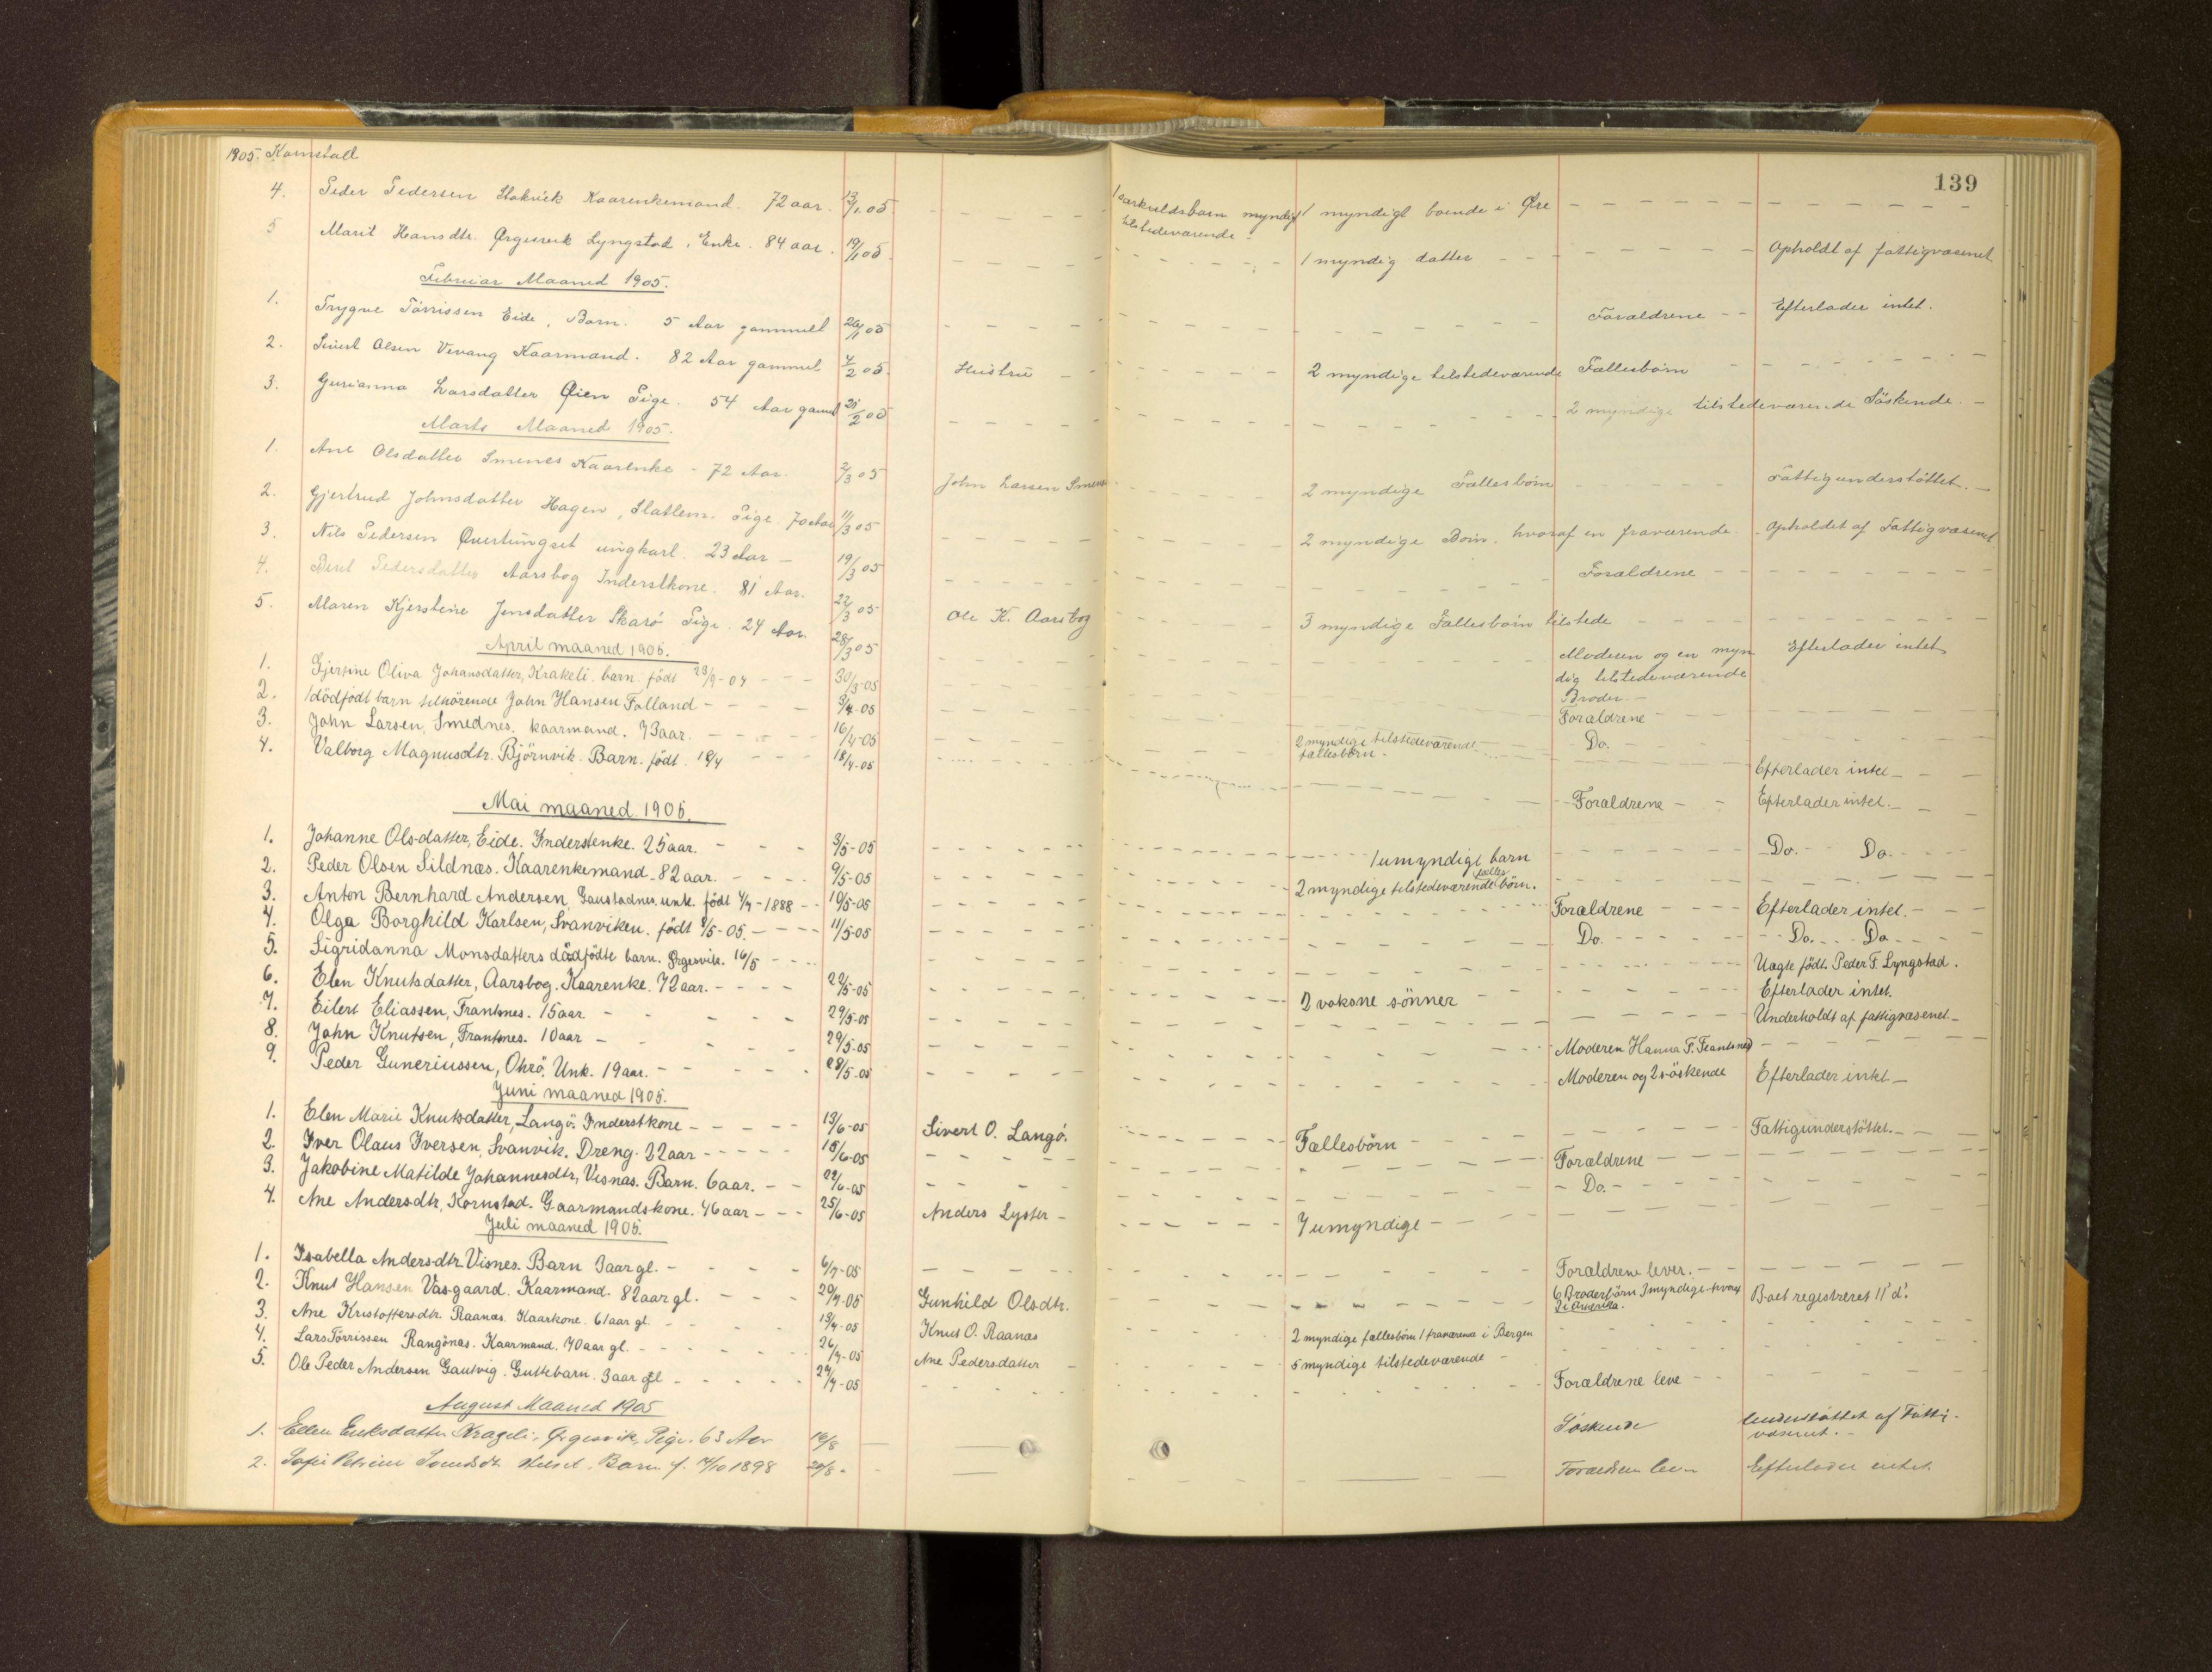 1905. Kornstad
139
4. Peder Pedersen Stokvik Kaarenkemand. 72 aar. 13/1.05 1 særkuldsbarn myndig 1 myndigt boende i Øre
tilstedeværende
5 Marit Hansdtr. Ørgesvik Lyngstad, Enke. 84 aar. 19/1 05 1 myndig datter Opholdt af fattigvæsenet
Februar Maaned 1905.
1. Trygve Tørrissen Eide, Barn. 5 Aar gammelt 26/1 05 Forældrene Efterlader intet.
2. Sivert Olsen Vevang Kaarmand. 82 Aar gammel 4/2 05. Hustru 2 myndige tilstedeværende Fællesbørn
3. Gurianna Larsdatter Øien Pige. 54 Aar gammel 21/2 05 2 myndige tilstedeværende Söskende.
Marts Maaned 1905.
1. Ane Olsdatter Smenes Kaarenke - 72 Aar. 2/3 05 John Larsen Smenes 2 myndige Fællesbörn Fattigunderstöttet.
2. Gjertrud Johnsdatter Hagen, Statlem. Pige. 70 Aar 11/3 05 2 myndige Börn. hvoraf en fraværende. Opholdet af Fattigvæsenet.
3. Nils Pedersen Qvertungset ungkarl. 23 Aar 19/3 05 Forældrene
4. Beret Pedersdatter Aarsbog Inderstkone. 81 Aar. 22/3 05 Ole K. Aarsbog 3 myndige Fællesbörn tilstede
5. Maren Kjerstine Jensdatter Skarö Pige. 24 Aar. 28/3 05 Moderen og en myn Efterlader intet
dig tilstedeværende
Broder.
April maaned 1905.
1. Gjertine Oliva Johansdatter, Krakeli. barn. födt 23/9-04 30/3-05 Forældrene
2. 1 dödfödt barn tilhörende John Hansen Folland 9/4-05 Do.
3. John Larsen, Smednes. kaarmand. 73 aar. 16/4-05 2 myndige tilstedeværende Efterlader intet
fællesbörn.
4. Valborg Magnusdtr. Björnvik. Barn. födt 18/4 18/4-05 Forældrene Efterlader intet.
Mai maaned 1905.
1. Johanne Olsdatter, Eide. Inderstenke. 25 aar. 3/5-05 1 umyndigt barn Do. Do.
2. Peder Olsen Sildnæs. Kaarenkemand. 82 aar. 9/5-05 2 myndige tilstedeværende fælles börn.
3. Anton Bernhard Andersen, Gaustadnes. unk. födt 4/4-1888 10/5-05 Forældrene Efterlader intet.
4. Olga Borghild Karlsen, Svanviken. födt 8/5-05. 11/5-05 Do. Do. Do
5. Sigridanna Monsdatters dödfödte barn. Ørgesvik. 16/5 Uægte födt. Peder F. Lyngstad.
6. Elen Knutsdatter, Aarsbog. Kaarenke. 72 aar. 22/5-05 2 voksne sönner Efterlader intet.
7. Eilert Eliassen, Frantsnes. 15 aar. 29/5-05 Underholdt af fattigvæsenet
8. John Knutsen, Frantsnes. 10 aar 29/5-05 Moderen Hanna F. Frantsnes
9. Peder Guneriussen, Ohrö. Unk. 19 aar. 28/5-05 Moderen og 2 söskende Efterlader intet
Juni maaned 1905.
1. Elen Marie Knutsdatter, Langö. Inderstkone 13/6-05 Sivert O. Langö. Fællesbörn Fattigunderstöttet.
2. Iver Olaus Iversen, Svanvik. Dreng. 22 aar 15/6-05 Forældrene
3. Jakobine Matilde Johannesdtr, Visnæs. Barn. 6 aar. 22/6-05 Do.
4. Ane Andersdtr, Kornstad. Gaarmandskone. 46 aar 25/6-05 Anders Lyster 7 umyndige
Juli maaned 1905.
1. Isabella Andersdtr. Visnes. Barn 3 aar gl. 6/7-05 Forældrene lever.
2. Knut Hansen Vasgaard. Kaarmand. 82 aar gl. 20/7-05 Gunhild Olsdtr. 6 Broderbörn 3 myndige hvoraf Boet registreret 11' d'.
2 i Amerika.
3. Ane Kristoffersdtr. Raanæs. Kaarkone. 61 aar gl. 19/7-05 Knut O. Raanæs 2 myndige fællesbörn 1 fraværende i Bergen
4. Lars Törrissen Rangönæs. Kaarmand. 70 aar gl. 26/7-05 Ane Pedersdatter 5 myndige tilstedeværende
5. Ole Peder Andersen Gautvig. Guttebarn. 3 aar gl 24/7-05 Forældrene leve
August Maaned 1905
1. Ellen Eriksdatter Krageli, Ørgesvik, Pige. 63 Aar 16/8 Söskende Understøttet af Fattig-
væsenet.
2. Sofie Petrine Barn f. 14/10 1898 20/8 Forældrene lever Efterlader intet.